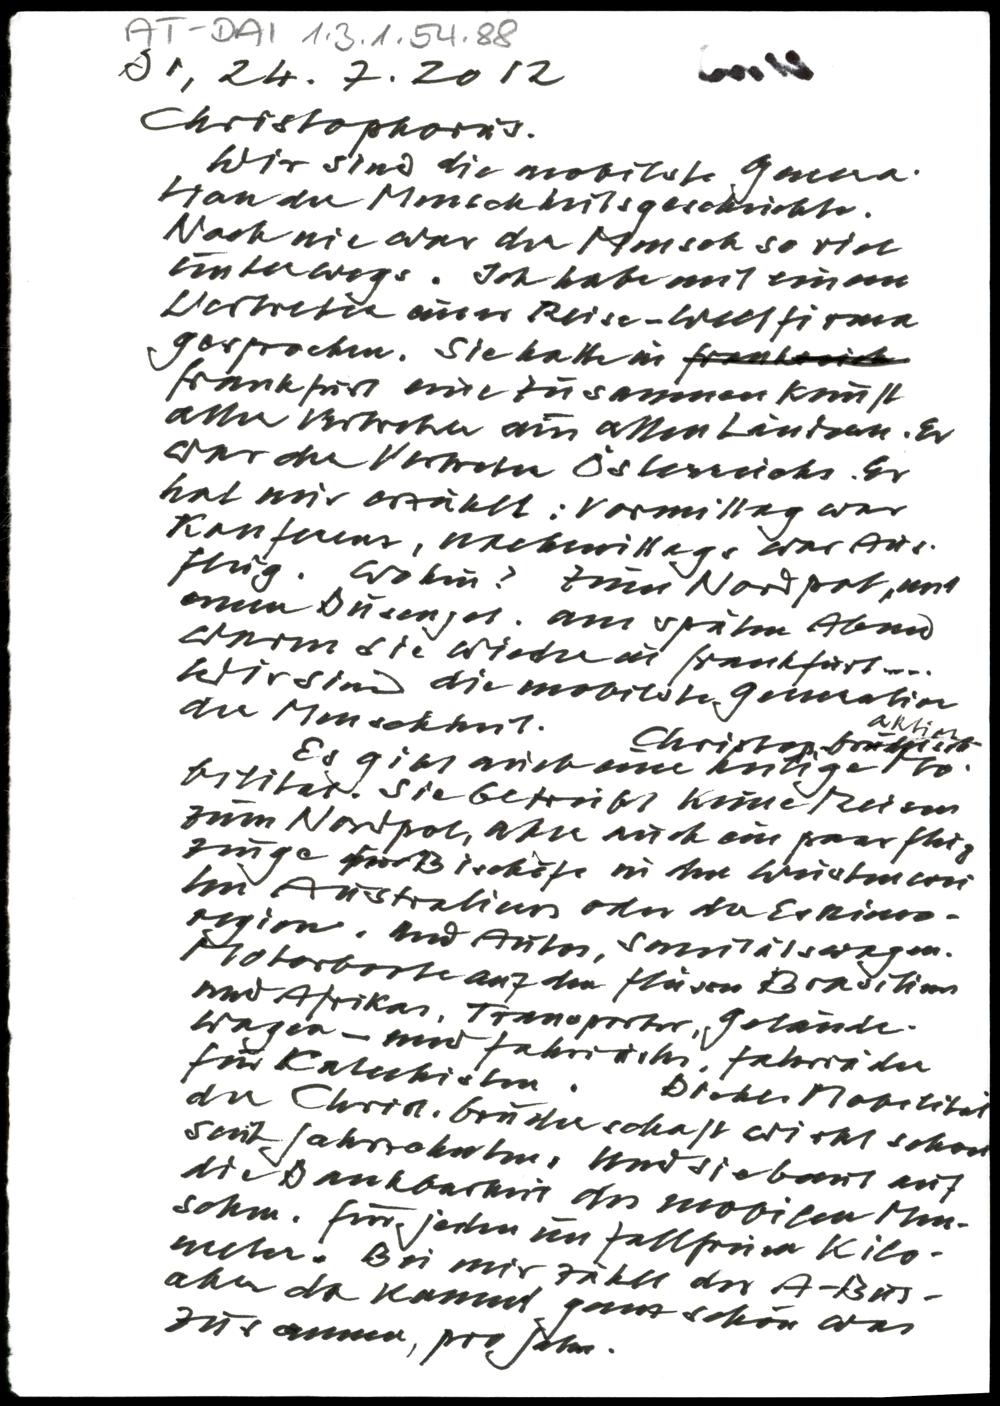 AT-DAI 1.3.1.54.88
Di, 24.7.2012
Christophorus.
Wir sind die mobilste Genera-
tion der Menschheitsgeschichte.
Noch nie war der Mensch so viel
unterwegs. Ich habe mit einem
Vertreter einer Reise-Weltfirma
gesprochen. Sie hatte in Frankreich
Frankfurt eine Zusammenkunft
aller Vertreter aus allen Ländern. Er
war der Vertreter Österreichs. Er
hat mir erzählt: Vormittag war
Konferenz, nachmittags war Aus-
flug. Wohin? Zum Nordpol, mit
einem Düsenjet. Am späten Abend
waren sie wieder in Frankfurt....
Wir sind die mobilste Generation
der Menschheit.
aktion
Es gibt auch eine heilige Mo-
bilität. Sie betreibt keine Reisen
zum Nordpol, aber auch ein paar Flug
zeuge für Bischöfe in den Wüstenwei
ten Australiens oder der Eskimo-
region. Und Autos, Sanitätswagen.
Motorboote auf den Flüssen Brasiliens
und Afrikas, Transporter, Gelände-
wagen – und Fahrräder, Fahrräder
für Katechisten. Diese Mobilität
der Christ. bruderschaft wirkt schon
seit Jahrzehnten. Und sie baut auf
die Dankbarkeit des mobilen Men-
schen. Für jeden unfallfreien Kilo-
meter. Bei mir zählt der A-Bus-
aber da kommt ganz schön was
zusammen, pro Jahr.